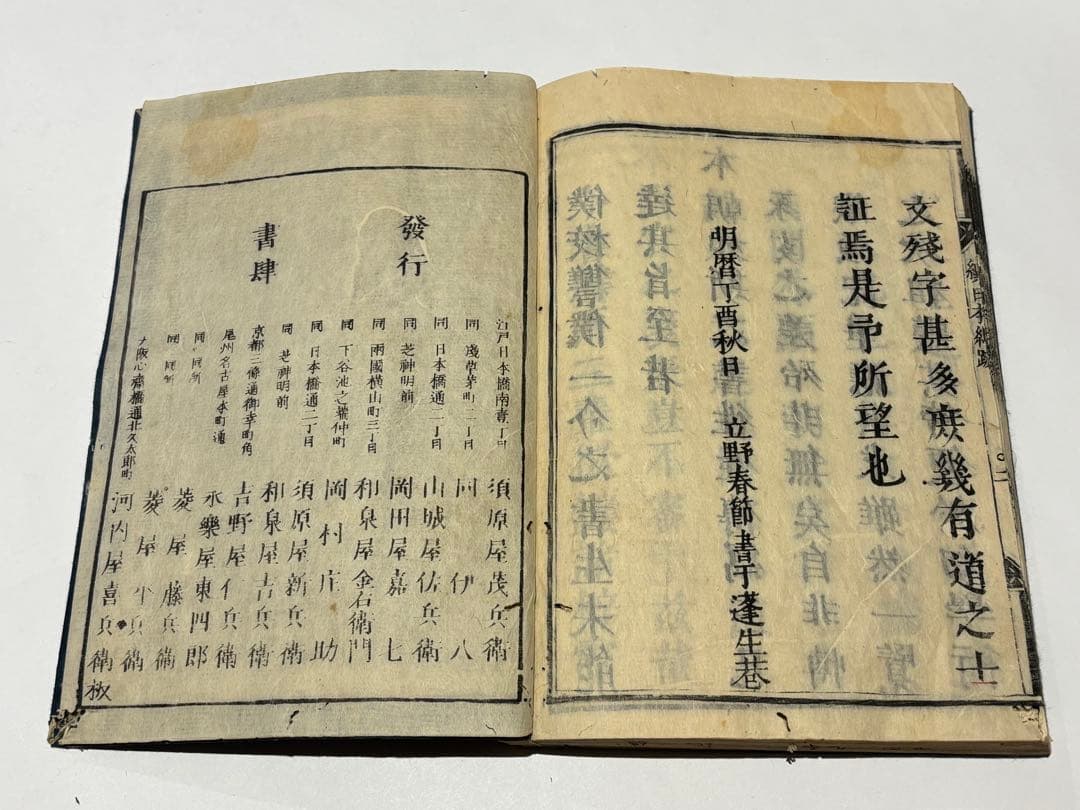 文殘字甚多庶幾有道之士
証焉是予所望也
明暦丁酉秋日 立野春節書于蓬生巷
續日本紀跋
發行
書肆
江戸日本橋南壹丁目 須原屋茂兵衛
同 淺草茅町二丁目 同 伊八
同 日本橋通二丁目 山城屋佐兵衛
同 芝神明前 岡田屋嘉七
同 兩國横山町三丁目 和泉屋金右衛門
同 下谷池之端仲町 岡村庄助
同 日本橋通二丁目 須原屋新兵衛
同 芝神明前 和泉屋吉兵衛
京都三條通御幸町角 吉野屋仁兵衛
尾州名古屋本町通 永樂屋東四郎
同 同所 菱屋藤兵衛
同 同所 菱屋平兵衛
大阪心齋橋通北久太郎町 河内屋喜兵衛板